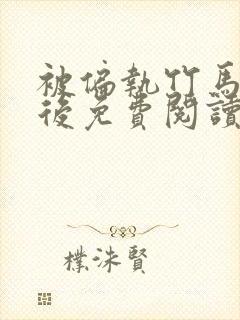 被偏執竹馬
後免費閱讀
樸洙賢